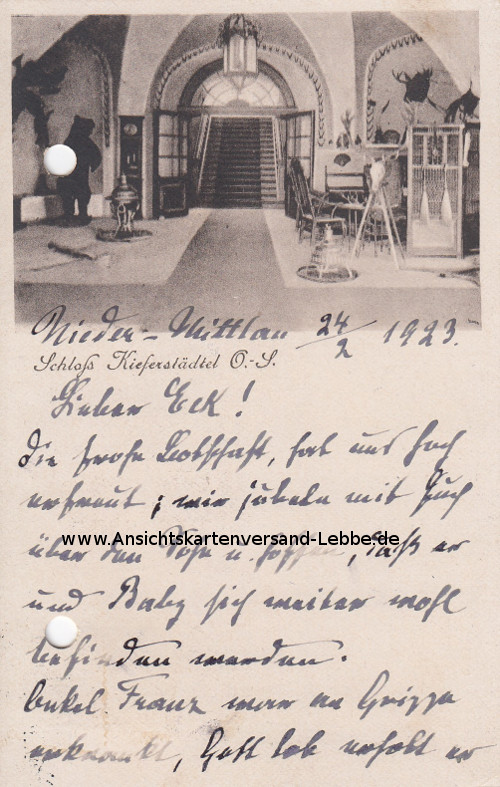 Nieder-Mittlau 24/2 1923.
Schloß Kieferstädtel O.-S.
Lieber Eck!
Die frohe Botschaft, hat uns hoch
erfreut; wir jubeln mit Euch
www.Ansichtskartenversand-Lebbe.de
über den Sohn u. hoffen, daß er
und Baby sich weiter wohl
befinden werden.
Onkel Franz war an Grippe
erkrankt, Gott lob erholt er